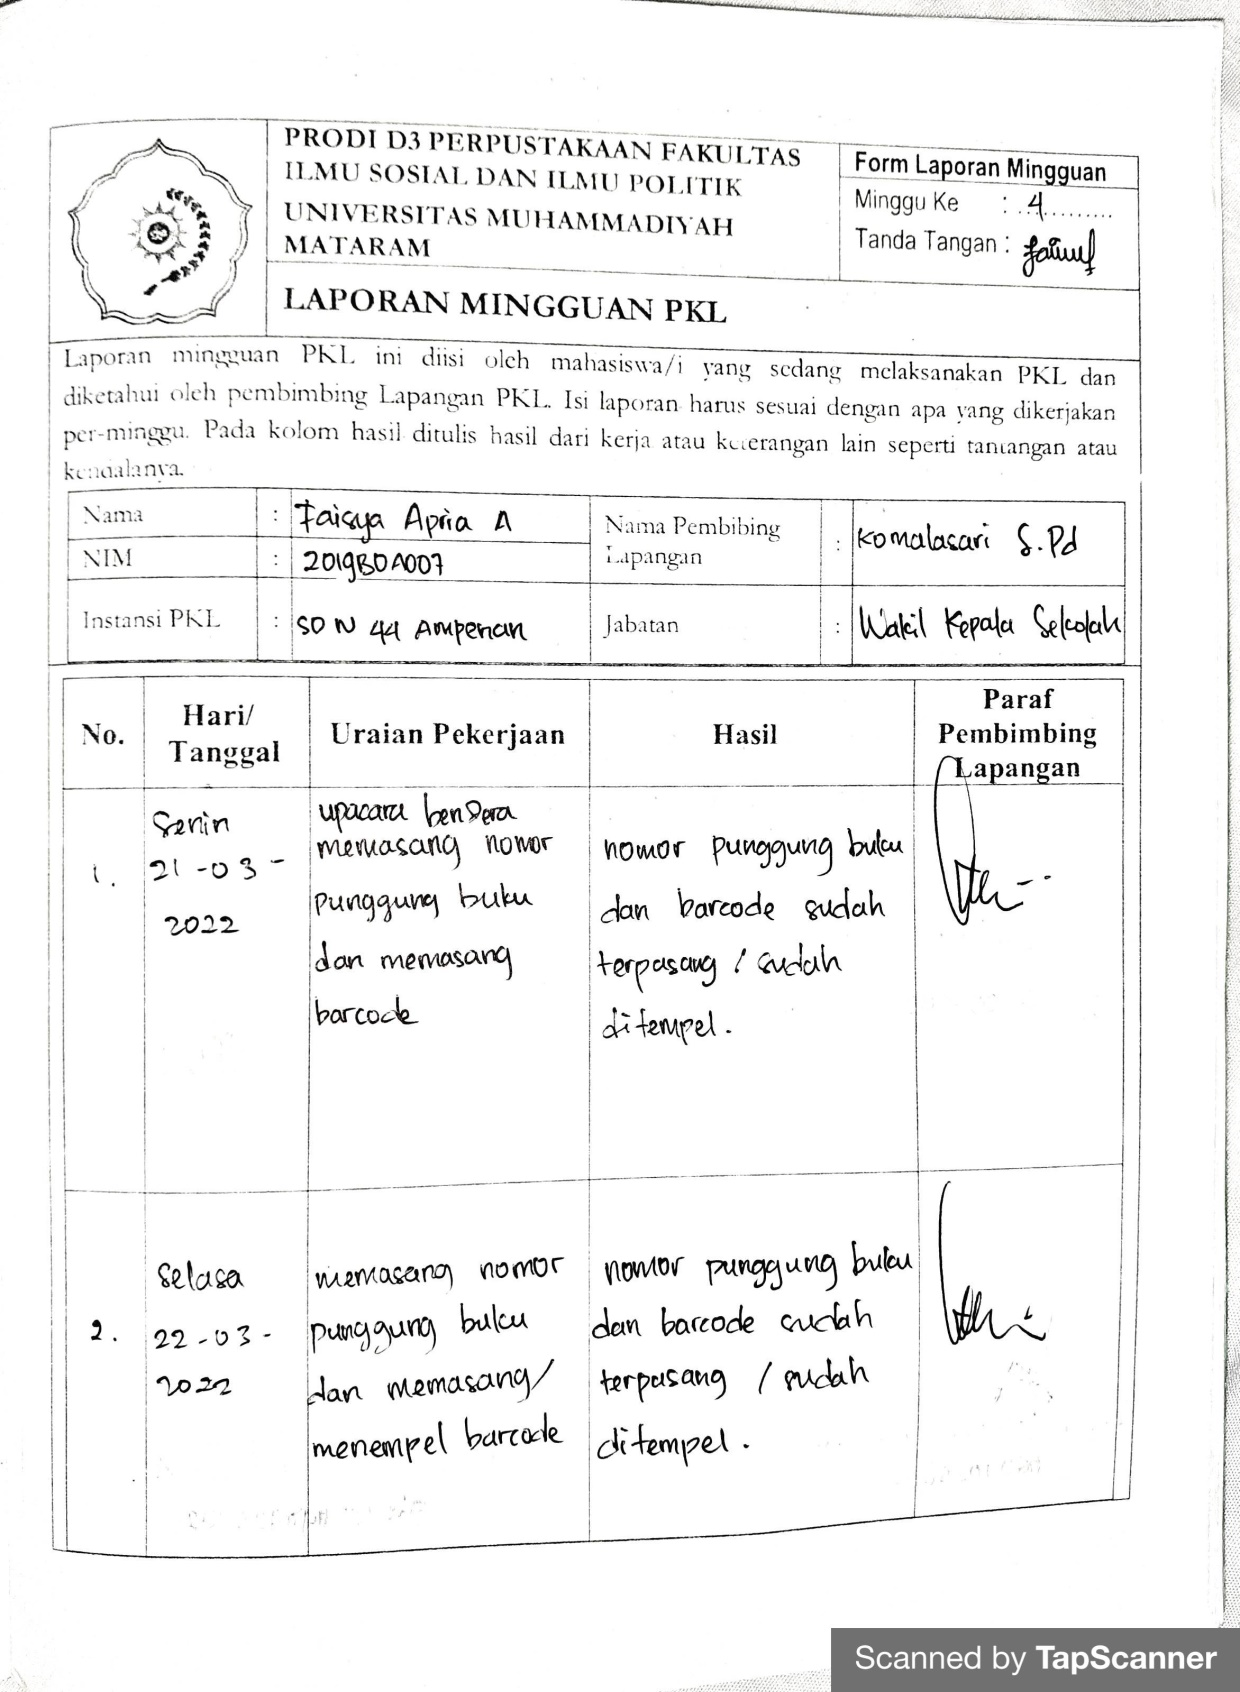 PRODI D3 PERPUSTAKAAN FAKULTAS
ILMU SOSIAL DAN ILMU POLITIK
UNIVERSITAS MUHAMMADIYAH
MATARAM
LAPORAN MINGGUAN PKL
Form Laporan Mingguan
Minggu Ke : ..4.........
Tanda Tangan :
Laporan mingguan PKL ini diisi oleh mahasiswa/i yang sedang melaksanakan PKL dan
diketahui oleh pembimbing Lapangan PKL. Isi laporan harus sesuai dengan apa yang dikerjakan
per-minggu. Pada kolom hasil ditulis hasil dari kerja atau keterangan lain seperti tantangan atau
kendalanya.
Nama : Faisya Apria A
NIM : 2019B0A007
Instansi PKL : SDN 44 Ampenan
Nama Pembibing
Lapangan : Komalasari S.Pd
Jabatan : Wakil Kepala Sekolah
No.
Hari/
Tanggal
Uraian Pekerjaan
Hasil
Paraf
Pembimbing
Lapangan
1.
Senin
21-03-
2022
upacara bendera
memasang nomor
punggung buku
dan memasang
barcode
nomor punggung buku
dan barcode sudah
terpasang / sudah
ditempel.
2.
Selasa
22-03-
2022
memasang nomor
punggung buku
dan memasang/
menempel barcode
nomor punggung buku
dan barcode sudah
terpasang / sudah
ditempel.
Scanned by TapScanner